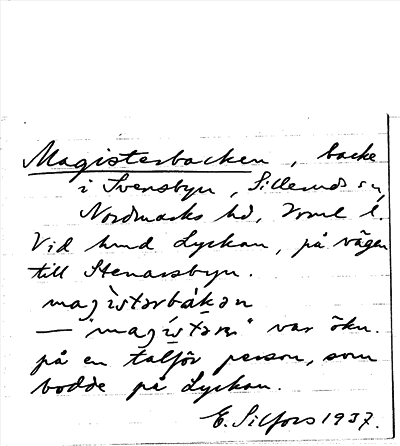 Magisterbacken, backe
i Svensbyn, Silleruds sn,
Nordmarks hd, Vrml l.
Vid hmd Lyckan, på vägen
till Stenarsbyn.
magìstərbákən
— "magístərn" var ökn.
på en talför person, som
bodde på Lyckan.
E. Silfors 1937.